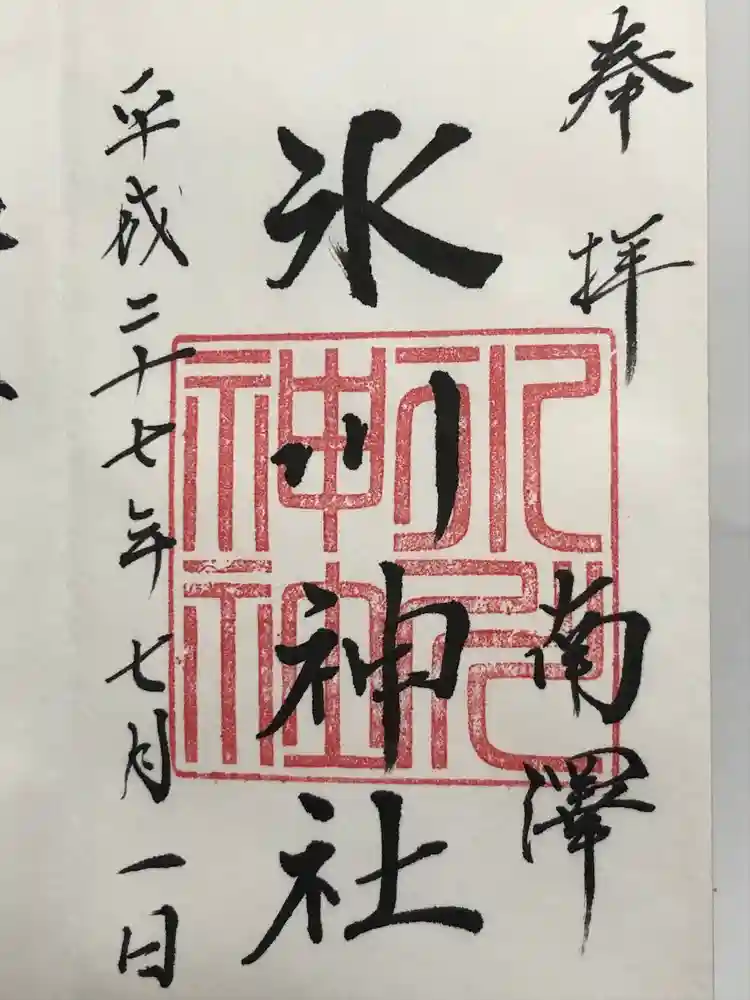 奉拝
南澤
氷川神社
平成二十七年七月一日